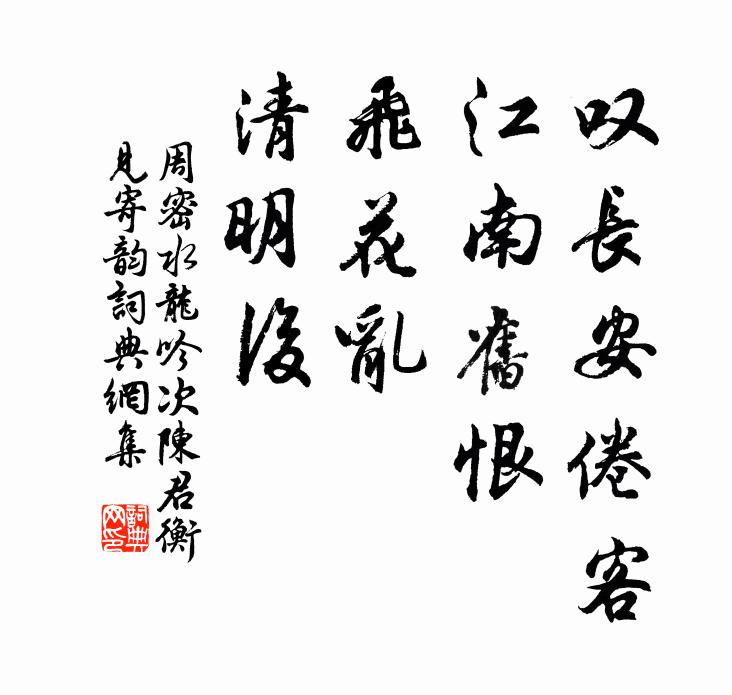 叹長安倦客
江南舊恨
飛花亂
清明後
周密水龍吟次陳君衡
見寄韵詞典網集
詞典网印